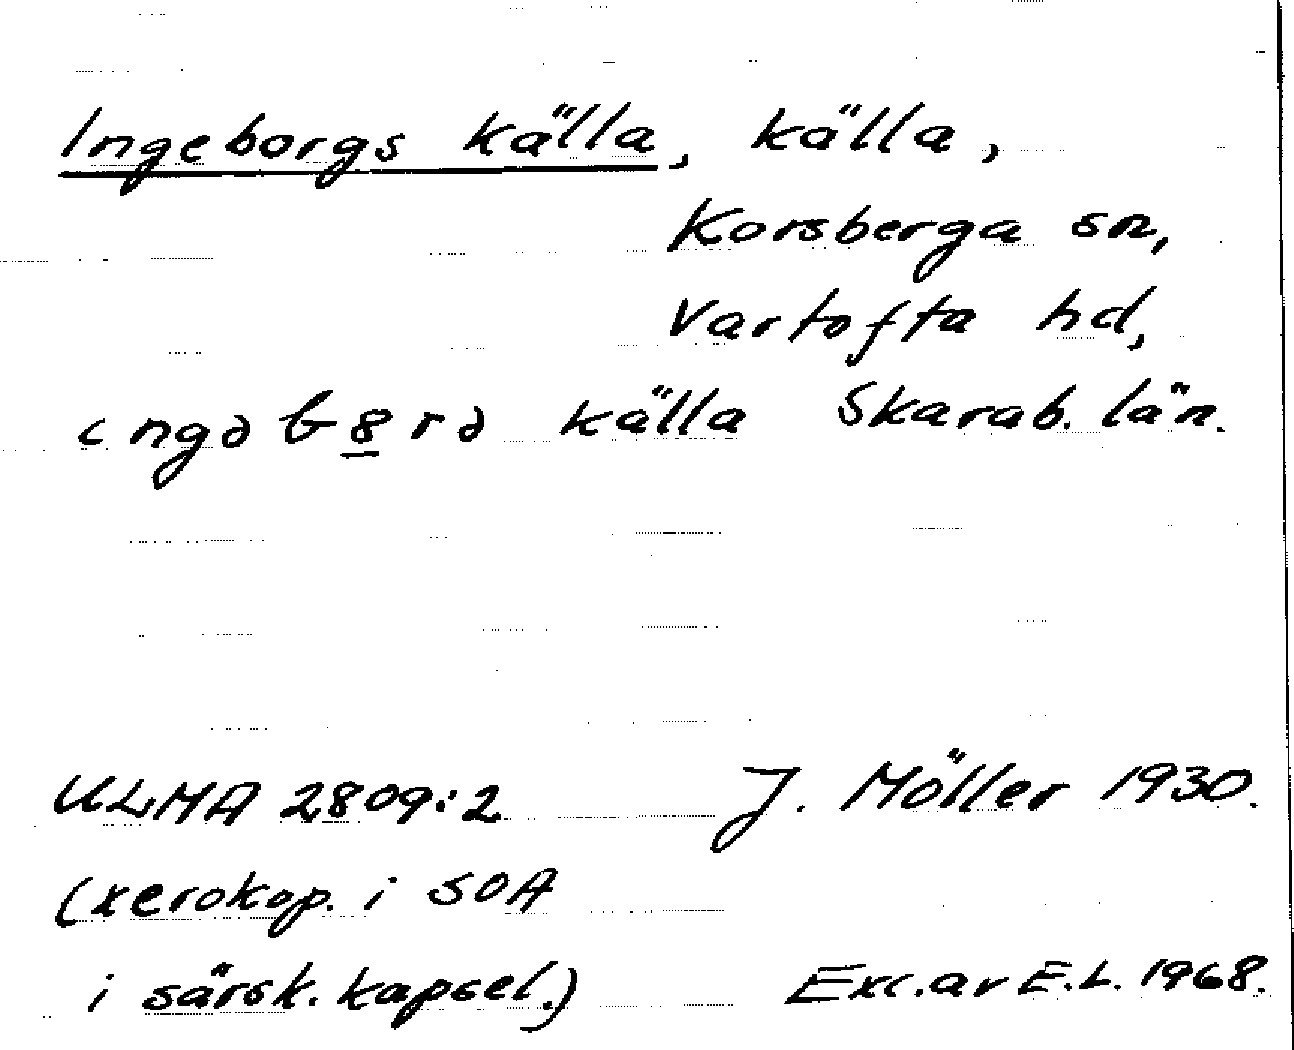 Ingeborgs källa, källa,
Korsberga sn,
Vartofta hd,
källa Skarab. län.
ULMA 2809:2 J. Möller 1930.
(xerokop. i SOA
i särsk. kapsel.) Exc. av E.L. 1968.